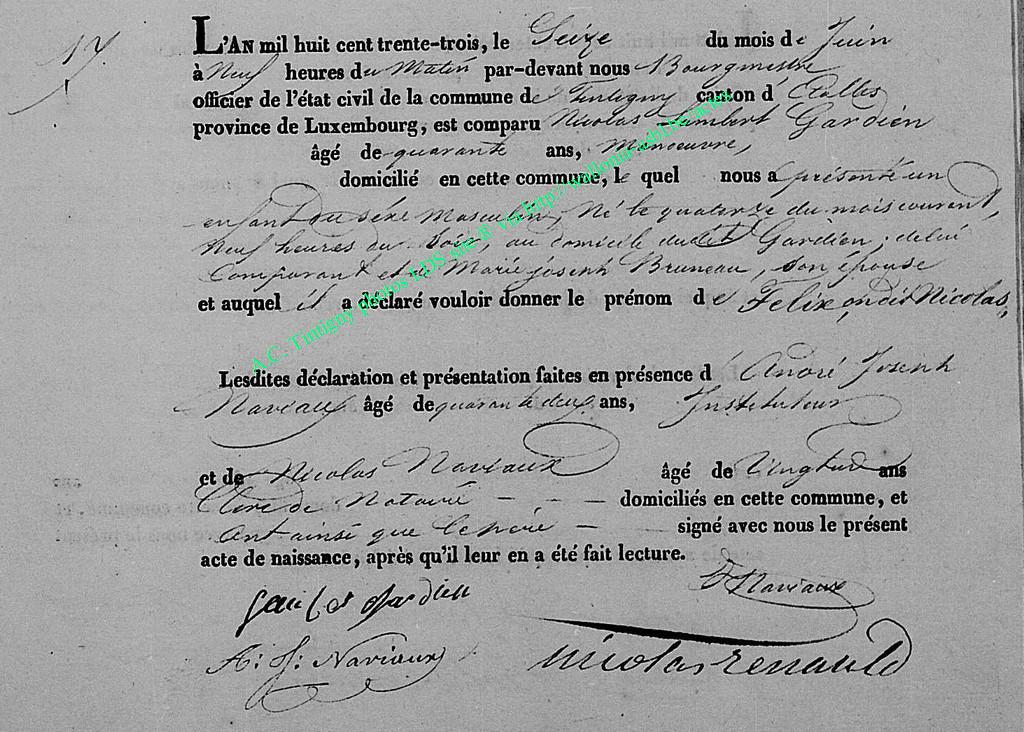 17.
L'AN mil huit cent trente-trois, le Seize du mois de Juin
à Neuf heures du Matin par-devant nous Bourgmestre
officier de l'état civil de la commune de Tintigny canton d'Étalles
province de Luxembourg, est comparu Nicolas Lambert Gardien
âgé de quarante ans, Manoeuvre,
domicilié en cette commune, le quel nous a présenté un
enfant du séxe Masculin, Né le quatorze du mois courant,
Neuf heures du Soir, au domicile dudit Gardien, de lui
Comparant et de Marie joseph Bruneau, son épouse
et auquel il a déclaré vouloir donner le prénom de Felix, on dit Nicolas,
A.C. Tintigny photos LDS site & via http://wallonia-asbl.be/ac.htm
Lesdites déclaration et présentation faites en présence d'André Joseph
Naviaux âgé de quarante deux ans, Instituteur
et de Nicolas Naviaux âgé de Vingt ans
Clerc de Notaire - - - domiciliés en cette commune, et
ont ainsi que le père - signé avec nous le présent
acte de naissance, après qu'il leur en a été fait lecture.
gardien
Naviaux
A: J: Naviaux
nicolas renauld